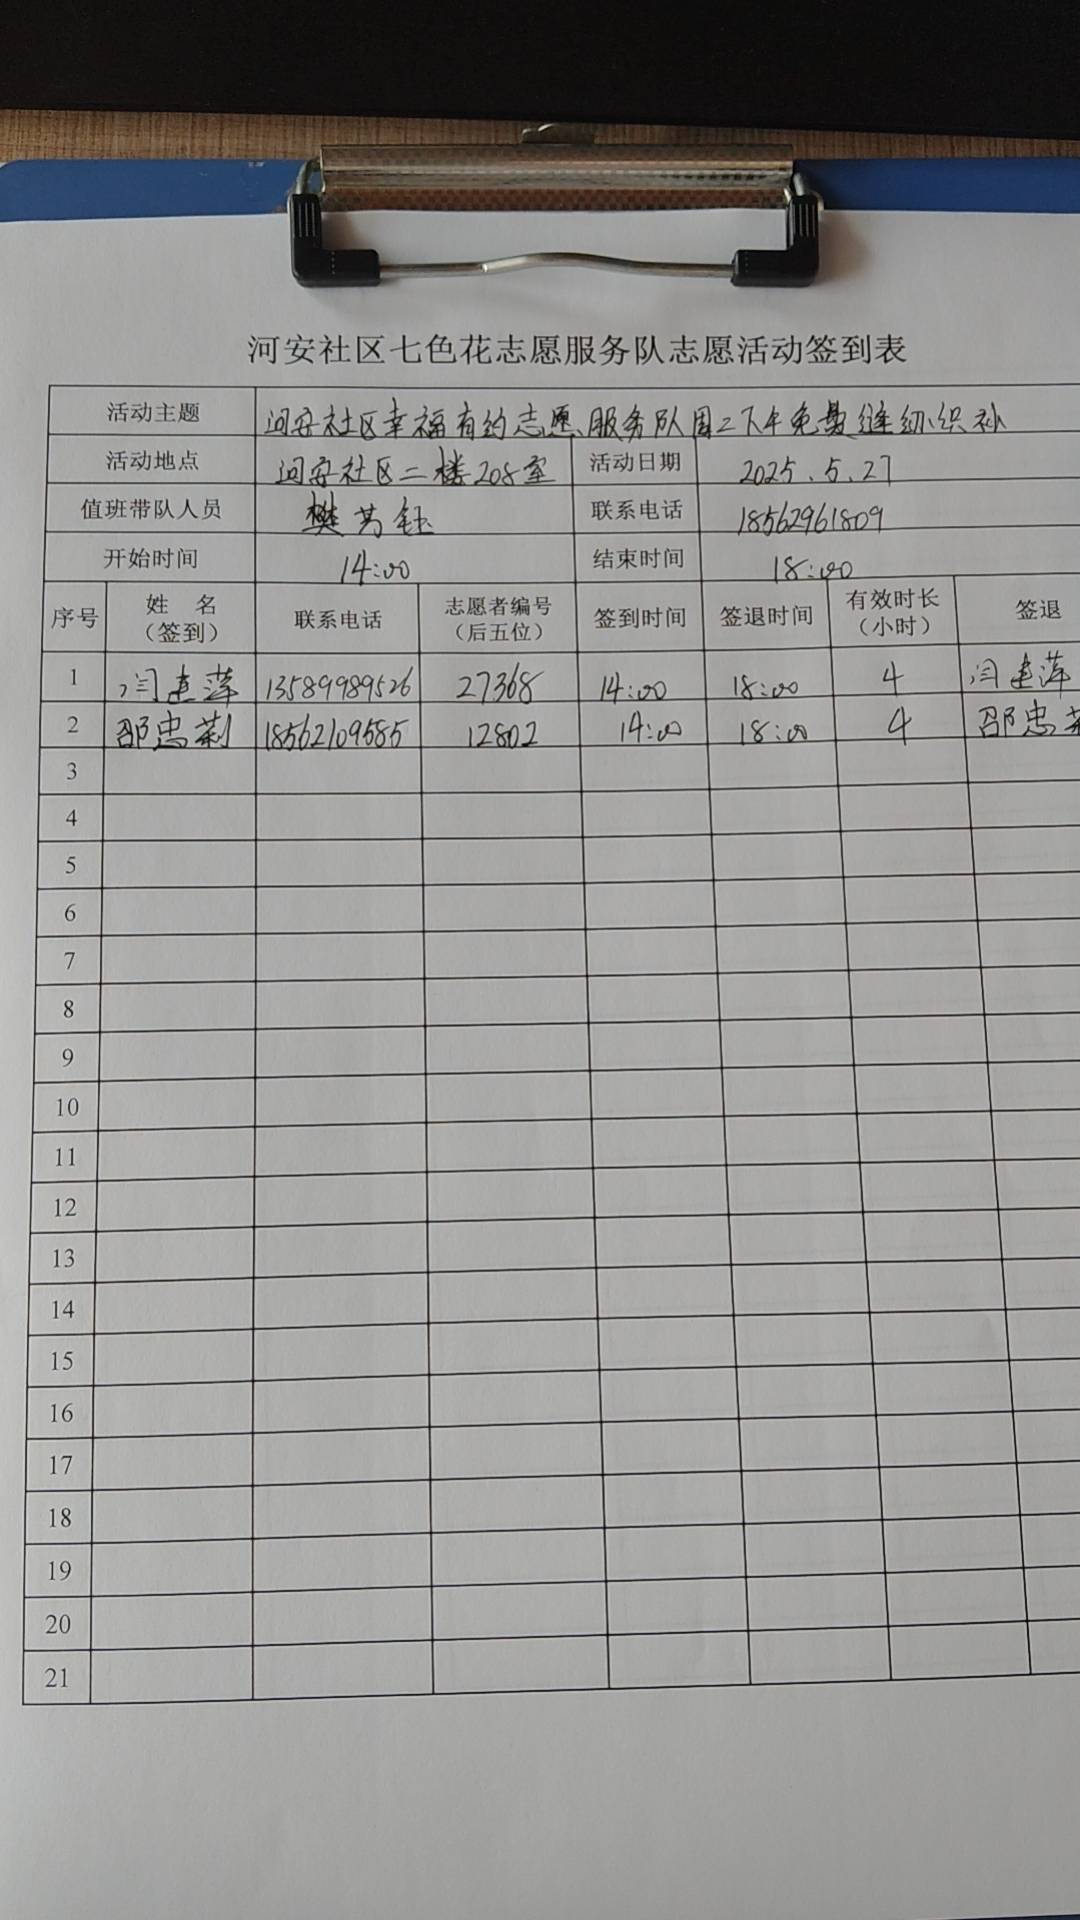 河安社区七色花志愿服务队志愿活动签到表
活动主题 河安社区幸福有约志愿服务队周二下午免费缝纫织补
活动地点 河安社区二楼208室 活动日期 2025.5.27
值班带队人员 樊芳钰 联系电话 18562961809
开始时间 14:00 结束时间 18:00
序号 姓 名（签到） 联系电话 志愿者编号（后五位） 签到时间 签退时间 有效时长（小时） 签退
1 闫建萍 13589989526 27368 14:00 18:00 4 闫建萍
2 邵忠莉 18562109585 12802 14:00 18:00 4 邵忠
3
4
5
6
7
8
9
10
11
12
13
14
15
16
17
18
19
20
21